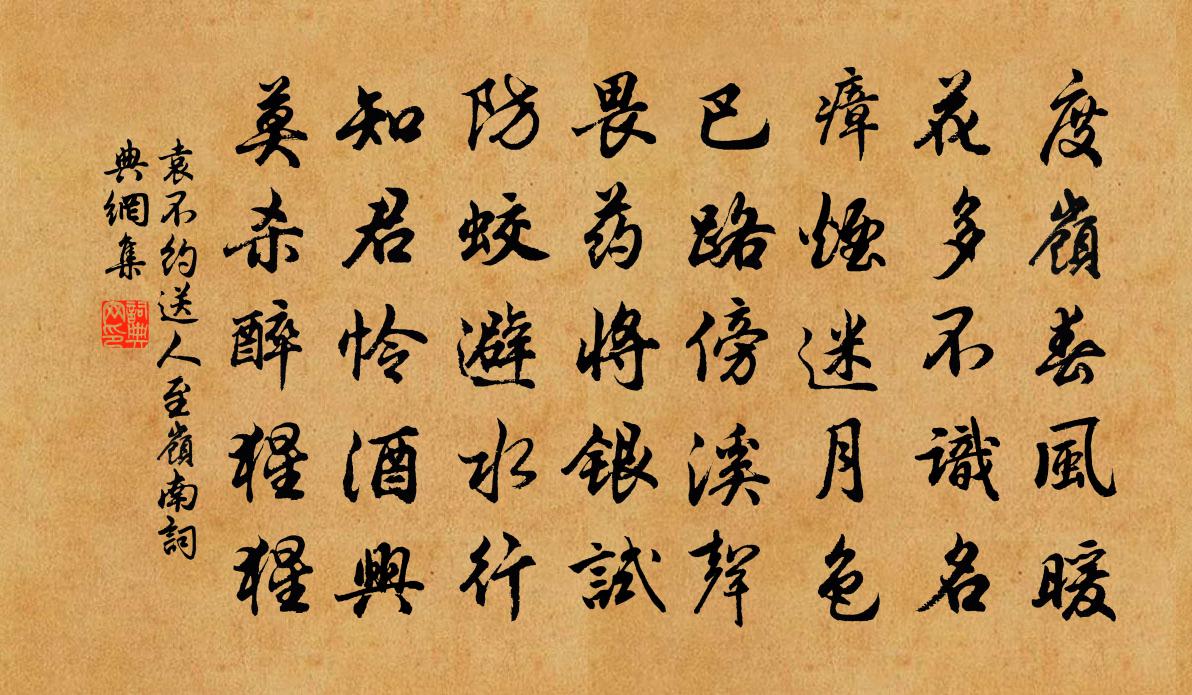 度嶺春風暖
花多不識名
瘴煙迷月色
巴路傍溪聲
畏药將銀試
防蛟避水行
知君怜酒興
莫杀醉猩猩
袁不約送人至嶺南詞
典網集
詞典
网印